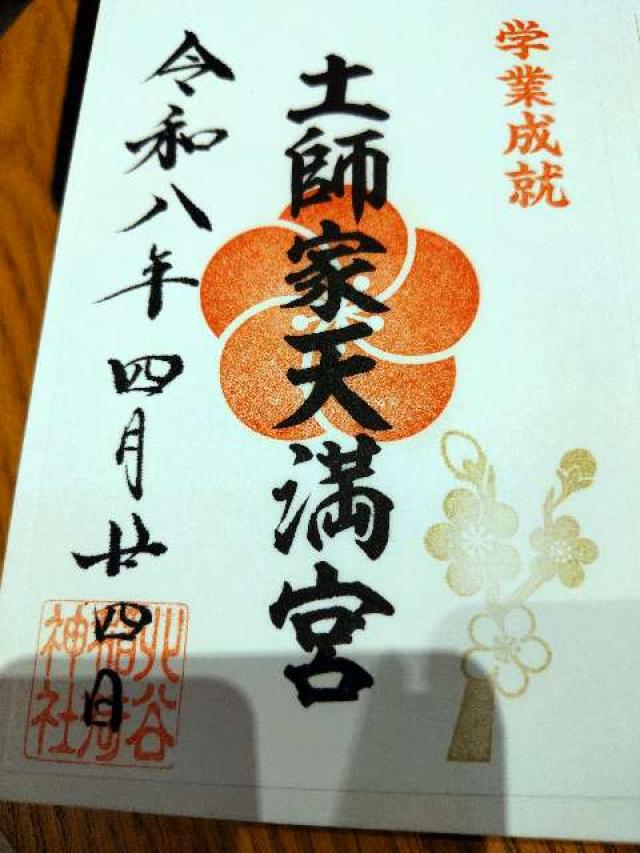 学業成就
土師家天満宮
令和八年四月廿四日
北谷稲荷神社